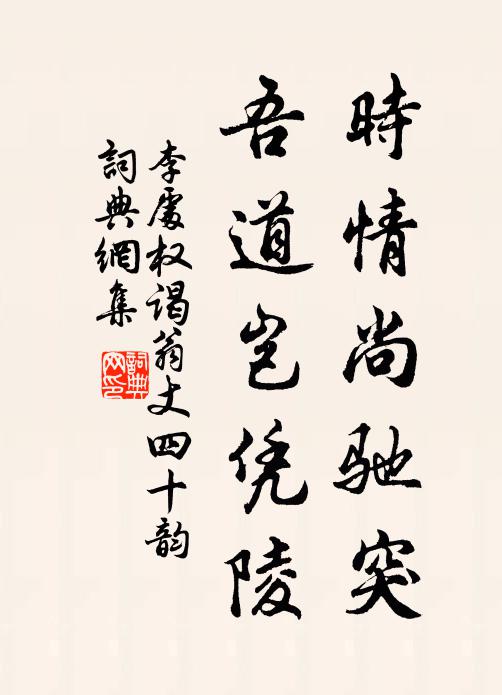 時情尚馳突
吾道岂凭陵
李處权谒翁丈四十韵
詞典網集
詞典网印